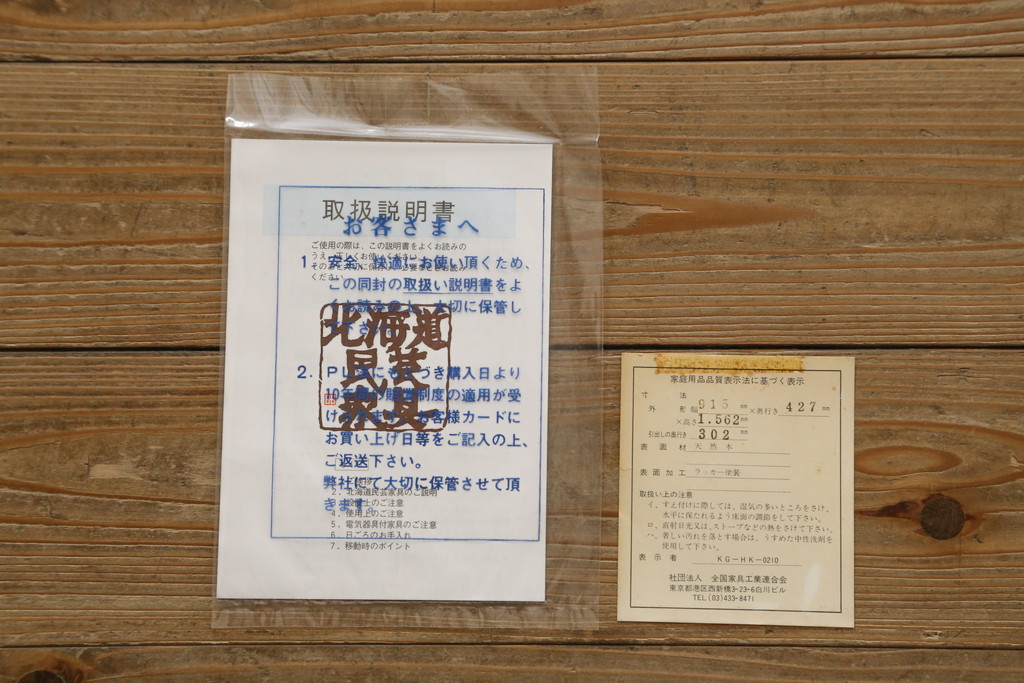 取扱説明書
お客さまへ
ご使用の際は、この説明書をよくお読みの
1. 安全、快適にお使い頂くため、
この同封の取扱い説明書をよ
くお読みの上、大切に保管し
て下さい。
北海道
民芸
家具
2. PL法にもとづき購入日より
10年間の賠償制度の適用が受
けられます。お客様カードに
お買い上げ日等をご記入の上、
ご返送下さい。
弊社にて大切に保管させて頂
きます。
2、北海道民芸家具のご説明
3、設置上のご注意
4、使用上のご注意
5、電気器具付家具のご注意
6、日ごろのお手入れ
7、移動時のポイント
家庭用品品質表示法に基づく表示
寸法
外形 幅 915 mm × 奥行き 427 mm
× 高さ 1.562 mm
引出しの奥行き 302 mm
表面材 天然木
表面加工 ラッカー塗装
取扱い上の注意
イ、すえ付けに際しては、湿気の多いところをさけ、
水平に保たれるよう床面の調節をして下さい。
ロ、直射日光又は、ストーブなどの熱をさけて下さい。
ハ、著しい汚れを落とす場合は、うすめた中性洗剤を
使用して下さい。
表示者 KG-HK-0210
社団法人 全国家具工業連合会
東京都港区西新橋3-23-6白川ビル
TEL (03)433-8471